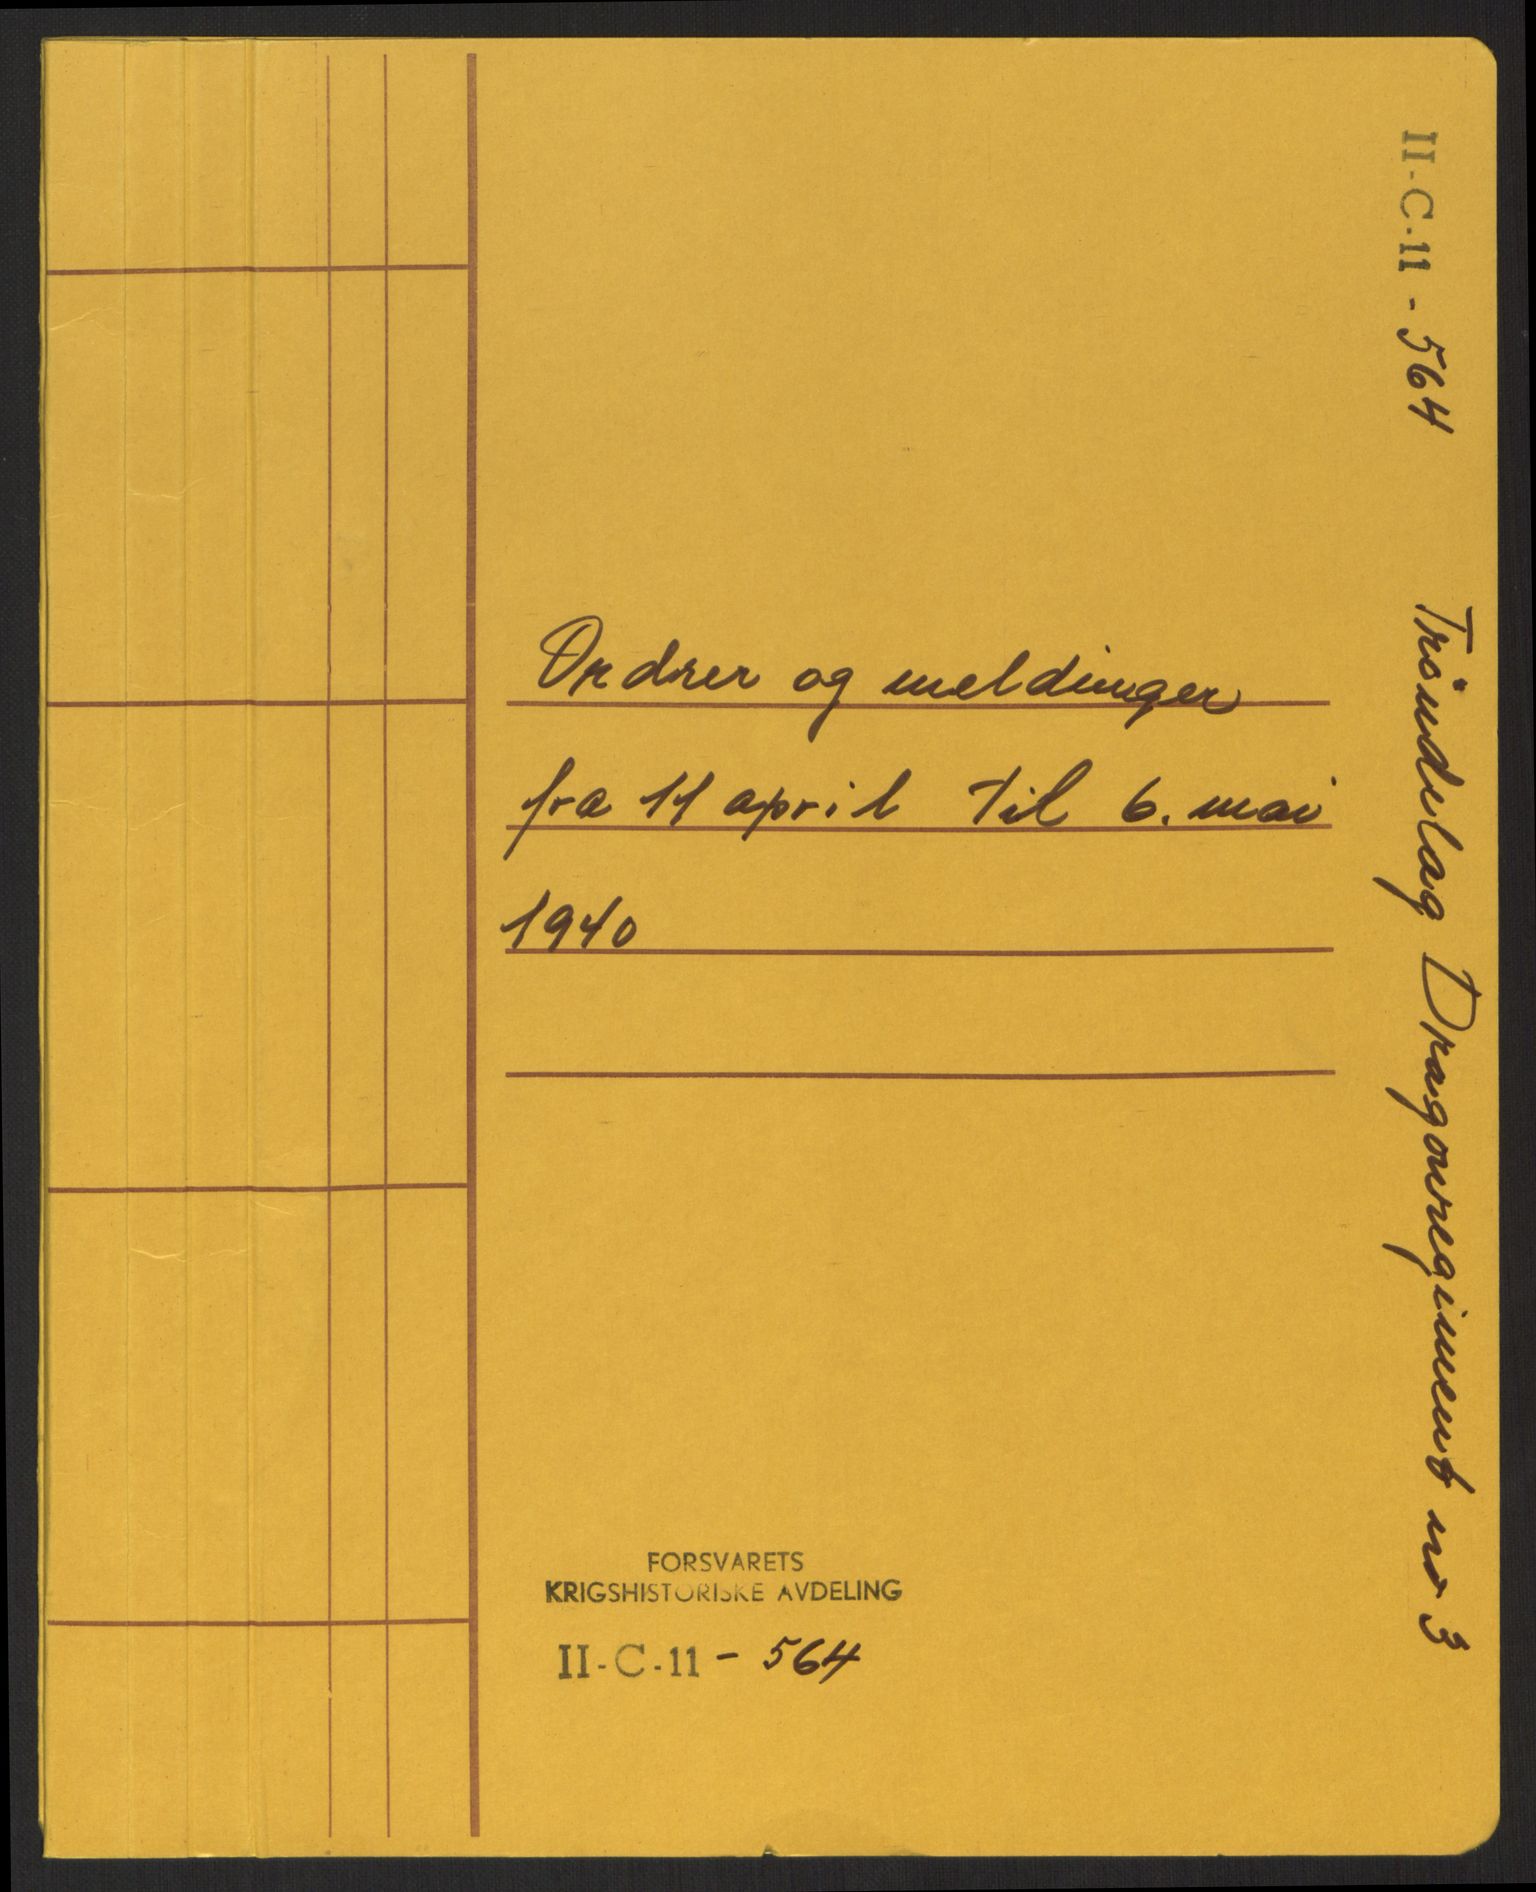 II-C-11 - 564 Tröndelag Dragonregiment nr 3
Ordrer og meldinger
fra 11 april til 6. mai
1940
FORSVARETS
KRIGSHISTORISKE AVDELING
II-C-11 - 564